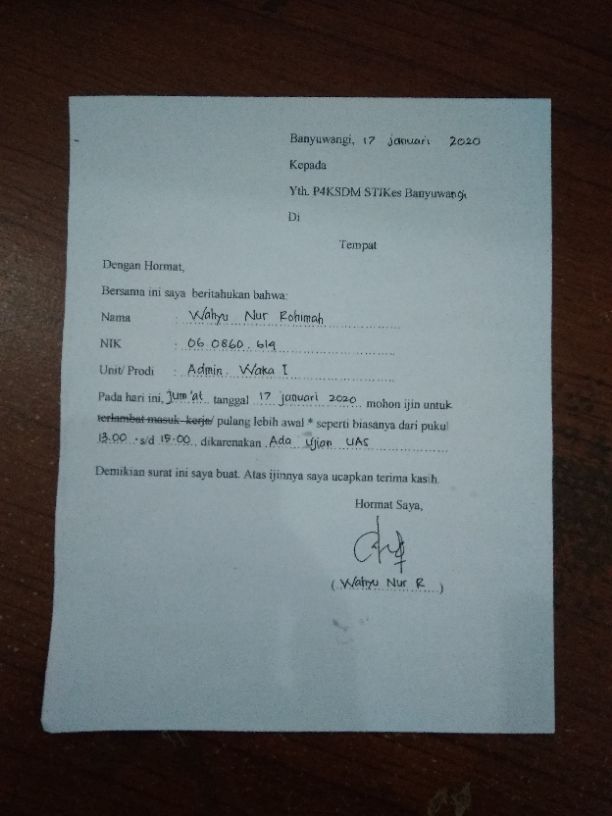 Banyuwangi, 17 januari 2020
Kepada
Yth. P4KSDM STIKes Banyuwangi
Di
Tempat
Dengan Hormat,
Bersama ini saya beritahukan bahwa:
Nama : Wahyu Nur Rohimah
NIK : 06.0860.619
Unit/ Prodi : Admin Waka I
Pada hari ini, jum'at tanggal 17 januari 2020 mohon ijin untuk
terlambat masuk kerja/ pulang lebih awal * seperti biasanya dari pukul
13.00 s/d 15.00, dikarenakan Ada Ujian UAS
Demikian surat ini saya buat. Atas ijinnya saya ucapkan terima kasih.
Hormat Saya,
( Wahyu Nur R )